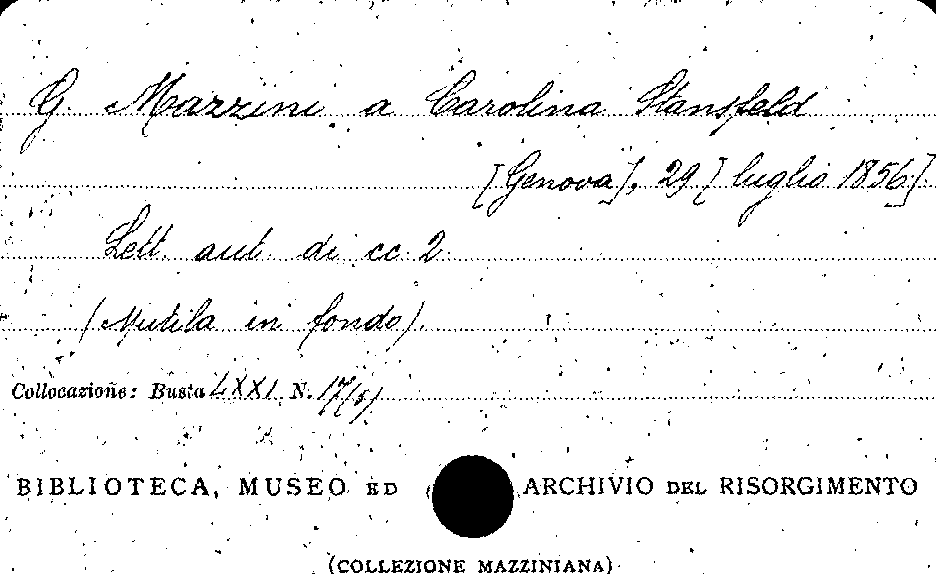 G. Mazzini a Carolina Stansfeld
[Genova], 29 [luglio 1856].
Lett. aut. di cc. 2
(Mutila in fondo).
Collocazione: Busta LXXI N. 17(5)
BIBLIOTECA, MUSEO ED ARCHIVIO DEL RISORGIMENTO
(COLLEZIONE MAZZINIANA)